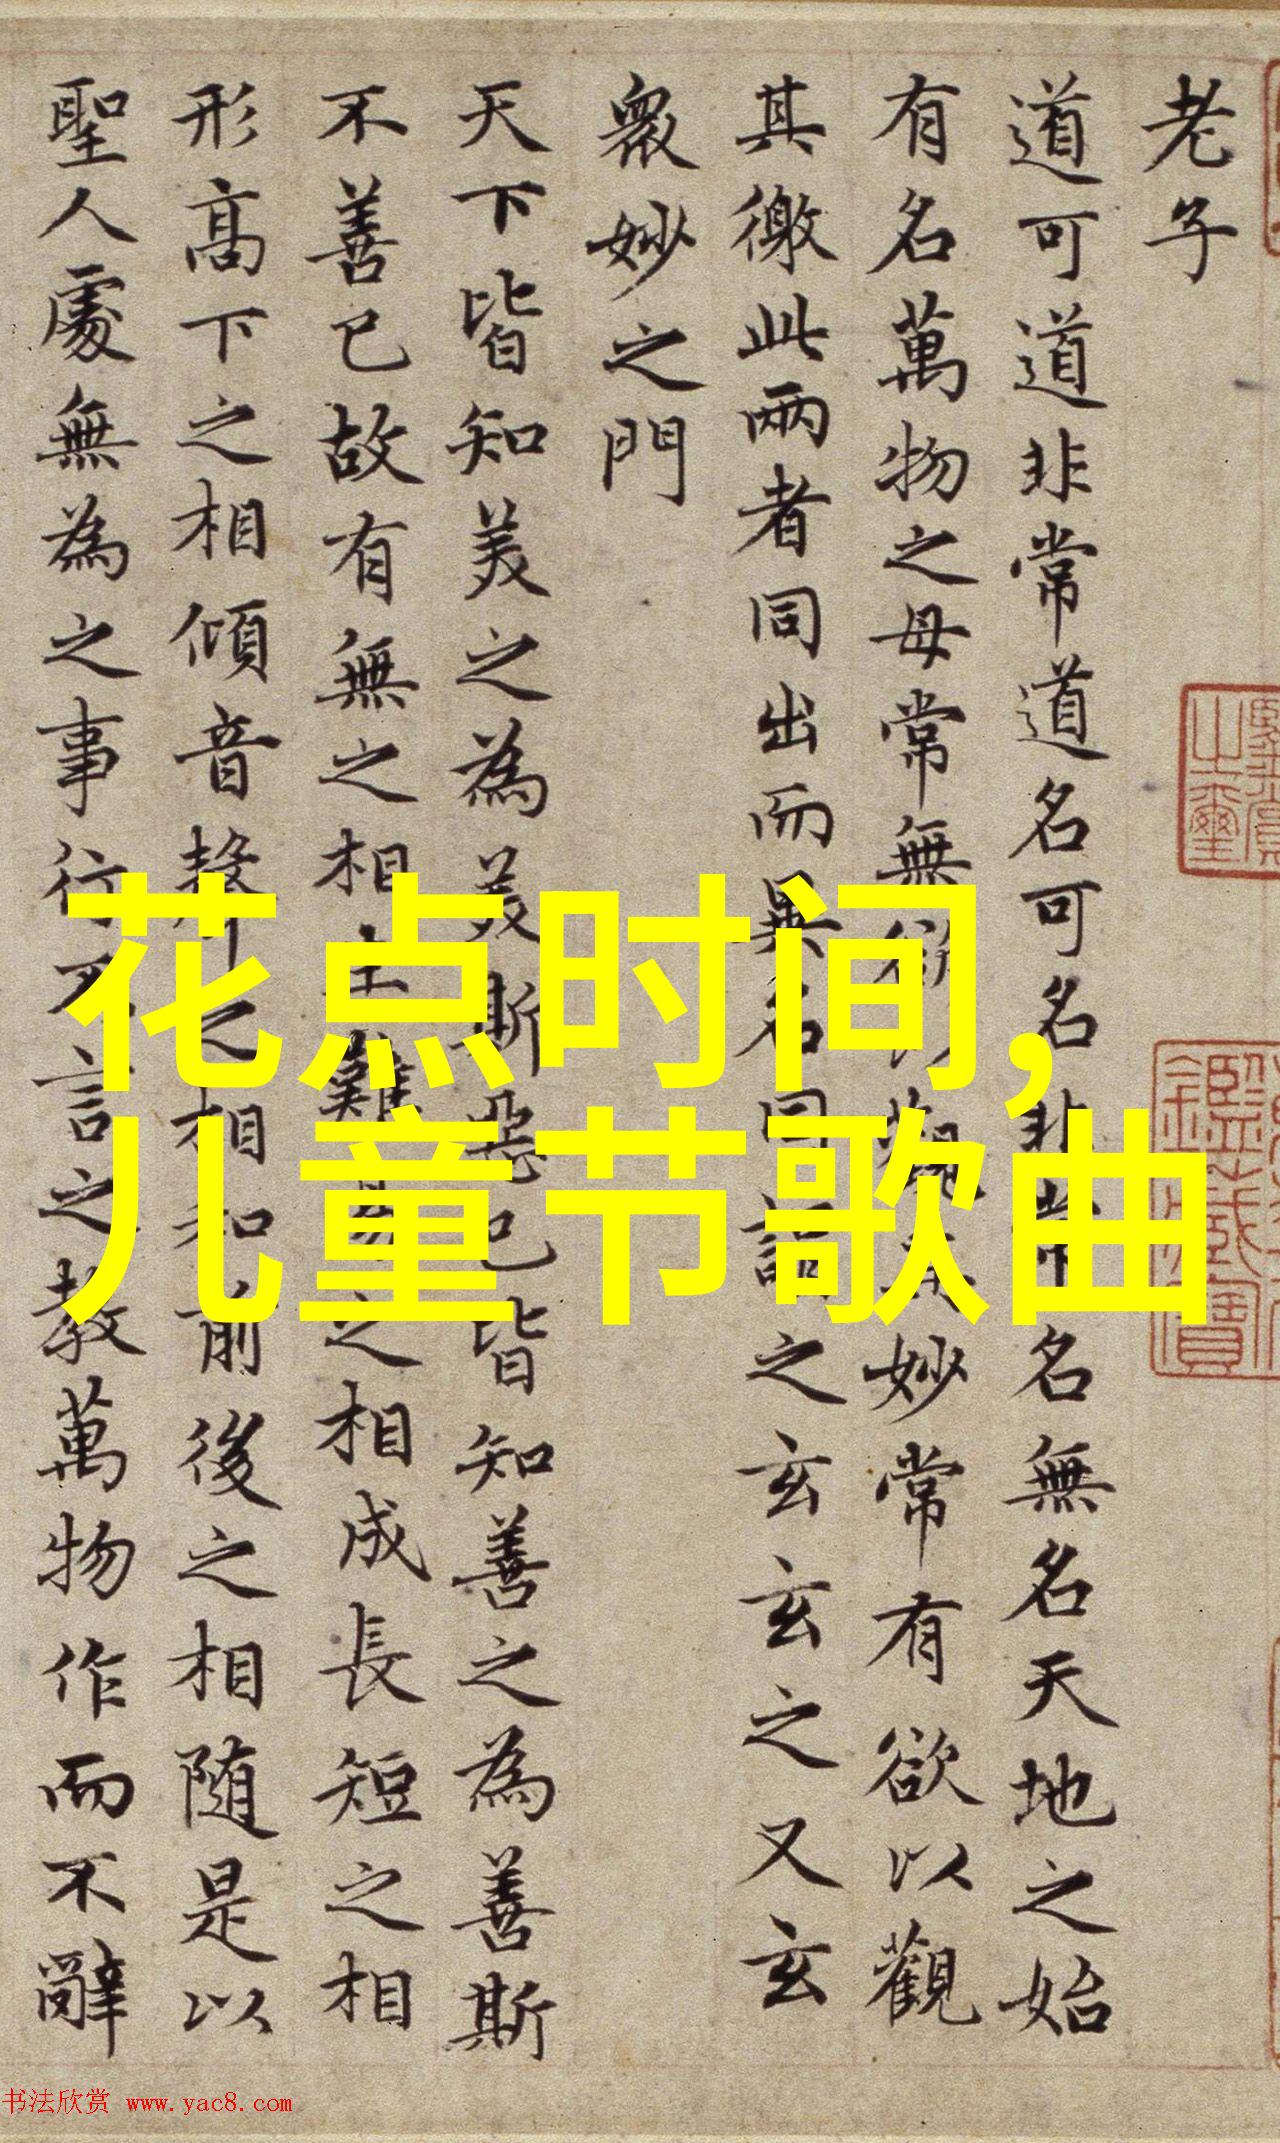 老子
道可道非常道名可名非常名無名天地之始
有名萬物之母常無欲以觀其妙常有欲以觀
其徼此兩者同出而異名同謂之玄玄之又玄
眾妙之門
天下皆知美之為美斯惡已皆知善之為善斯
不善已故有無之相生難易之相成長短之相
形髙下之相傾音聲之相和前後之相随是以
聖人處無為之事行不言之教萬物作而不辭
花点时间,
儿童节歌曲
书法欣赏 www.yac8.com